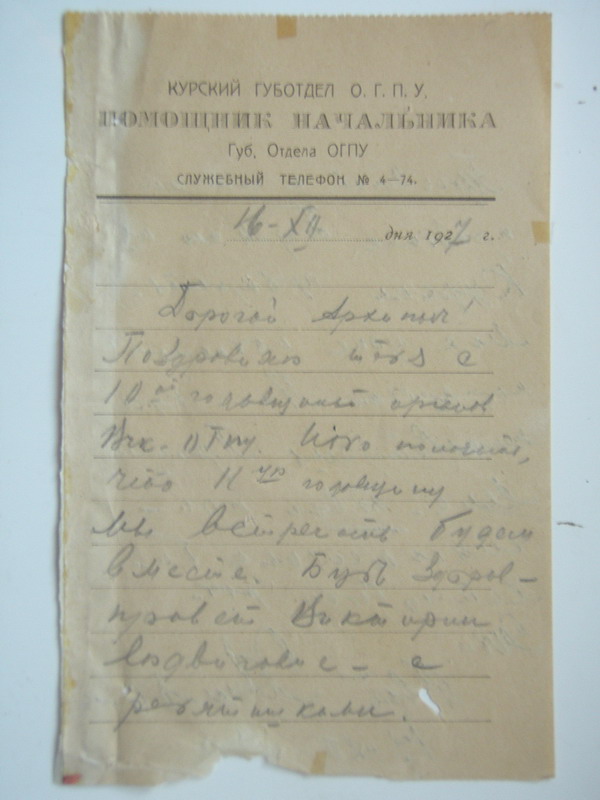 КУРСКИЙ ГУБОТДЕЛ О. Г. П. У.
ПОМОЩНИК НАЧАЛЬНИКА
Губ, Отдела ОГПУ
СЛУЖЕБНЫЙ ТЕЛЕФОН № 4-74.
16-XII дня 1927 г.
Дорогой
Поздравляю тебя с
10ой годовщиной органов
Вчк-ОГпу.
что 11ую годовщину
мы встречать будем
вместе. Будь здоров-
привет Виктории
Людвиговне - с
ребятишками.